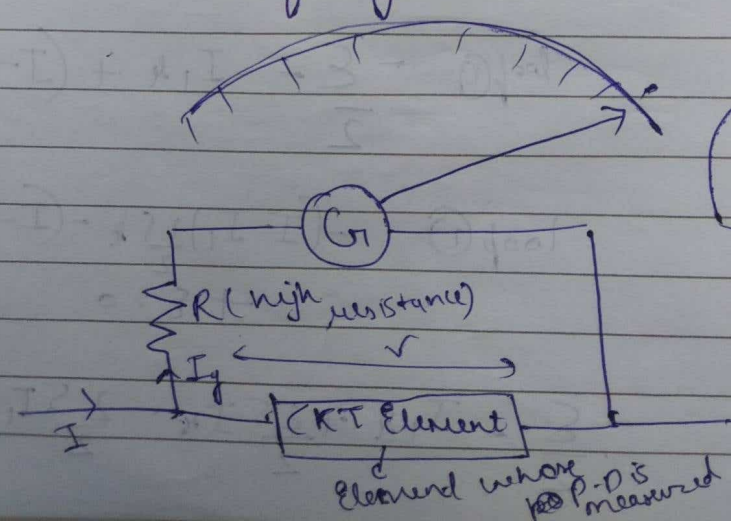 G
R (high resistance)
V
Ig
I
CKT Element
Element whose P.D is
measured